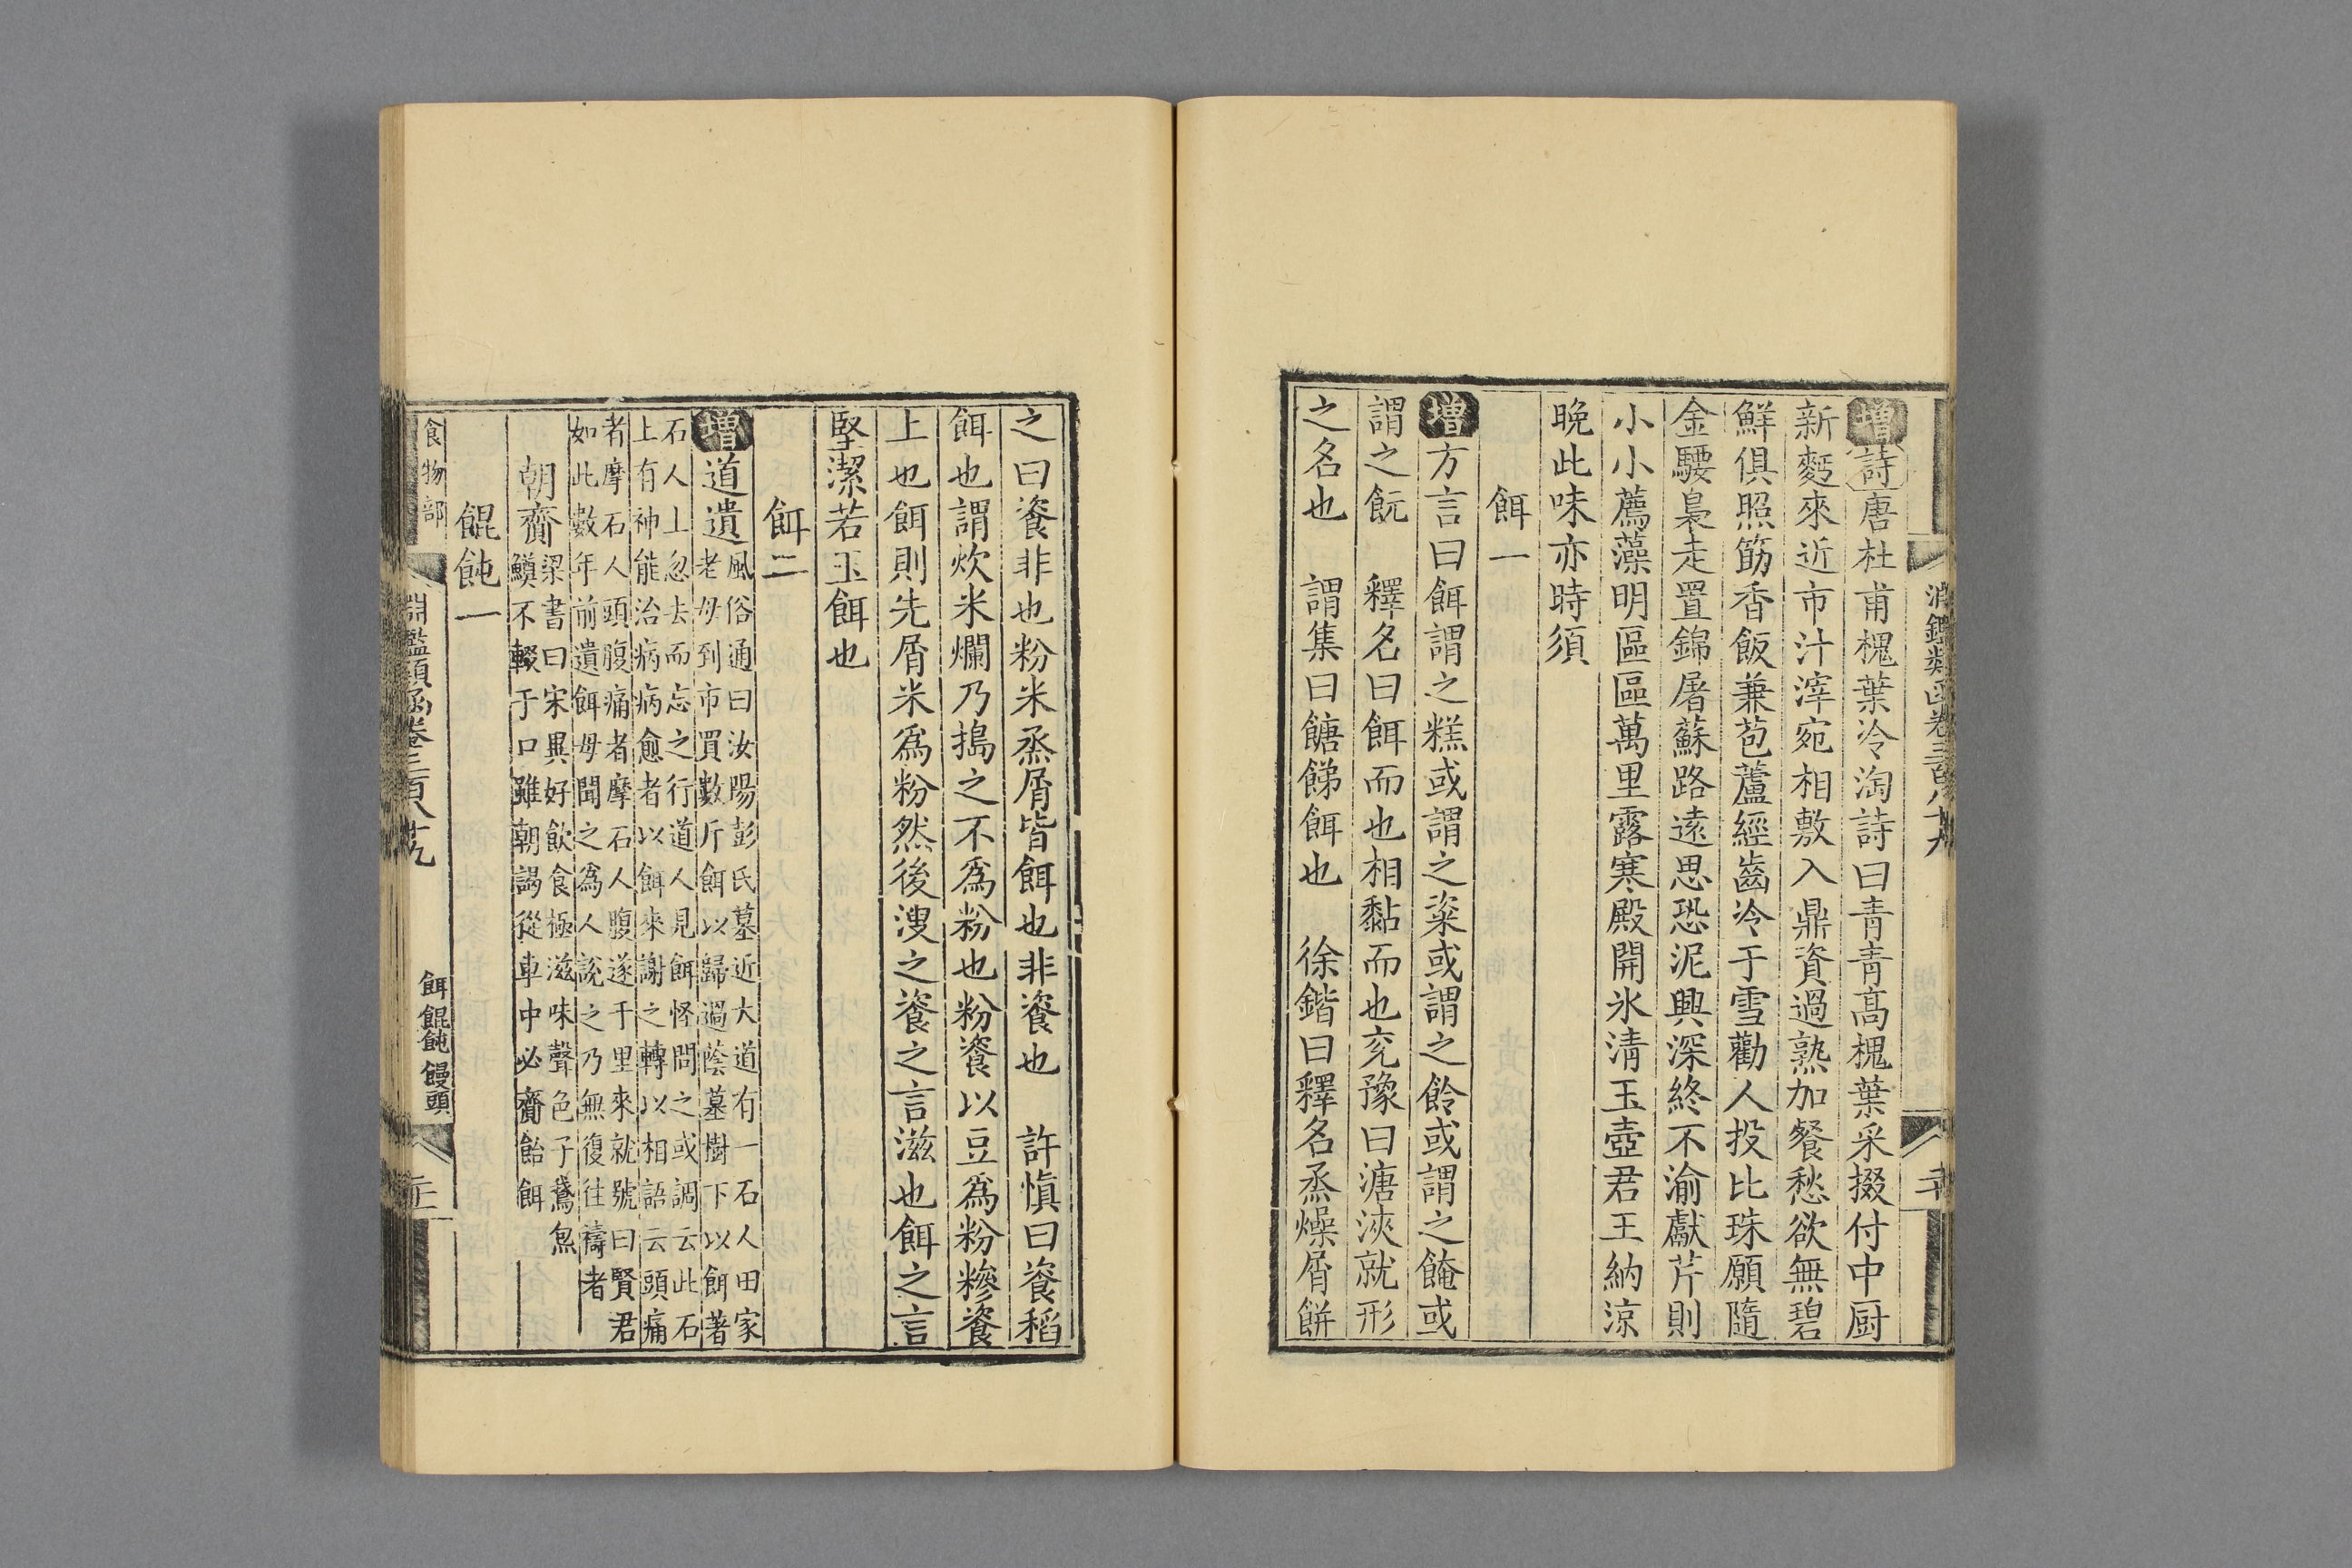 增詩唐杜甫槐葉冷淘詩曰青青高槐葉采掇付中厨
新麪來近市汁滓宛相敷入鼎資過熟加餐愁欲無碧
鮮俱照筯香飯兼苞蘆經齒冷于雪勸人投比珠願隨
金騕裊走置錦屠蘇路遠思恐泥興深終不渝獻芹則
小小薦藻明區區萬里露寒殿開氷淸玉壺君王納涼
晚此味亦時須
餌一
增方言曰餌謂之糕或謂之粢或謂之䬾或謂之餣或
謂之䬧　釋名曰餌而也相黏而也兖豫曰溏浹就形
之名也　謂集曰餹餳餌也　徐鍇曰釋名蒸燥屑餅
之曰餈非也粉米蒸屑皆餌也非餈也　許愼曰餈稻
餌也謂炊米爛乃搗之不爲粉也粉餈以豆爲粉糝餈
上也餌則先屑米爲粉然後溲之餈之言滋也餌之言
堅潔若玉餌也
餌二
增道遺風俗通曰汝陽彭氏墓近大道有一石人田家
老母到市買數斤餌以歸過蔭墓樹下以餌著
石人上忽去而忘之行道人見餌怪問之或調云此石
上有神能治病病愈者以餌來謝之轉以相語云頭痛
者摩石人頭腹痛者摩石人腹遂千里來就號曰賢君
如此數年前遺餌母聞之爲人說之乃無復往禱者
朝齎梁書曰宋異好飲食極滋味聲色子鵞炰
鱘不輟于口雖朝謁從車中必齎飴餌
餛飩一
食物部
淵鑑類函卷三百八十九
餌 餛飩 饅頭